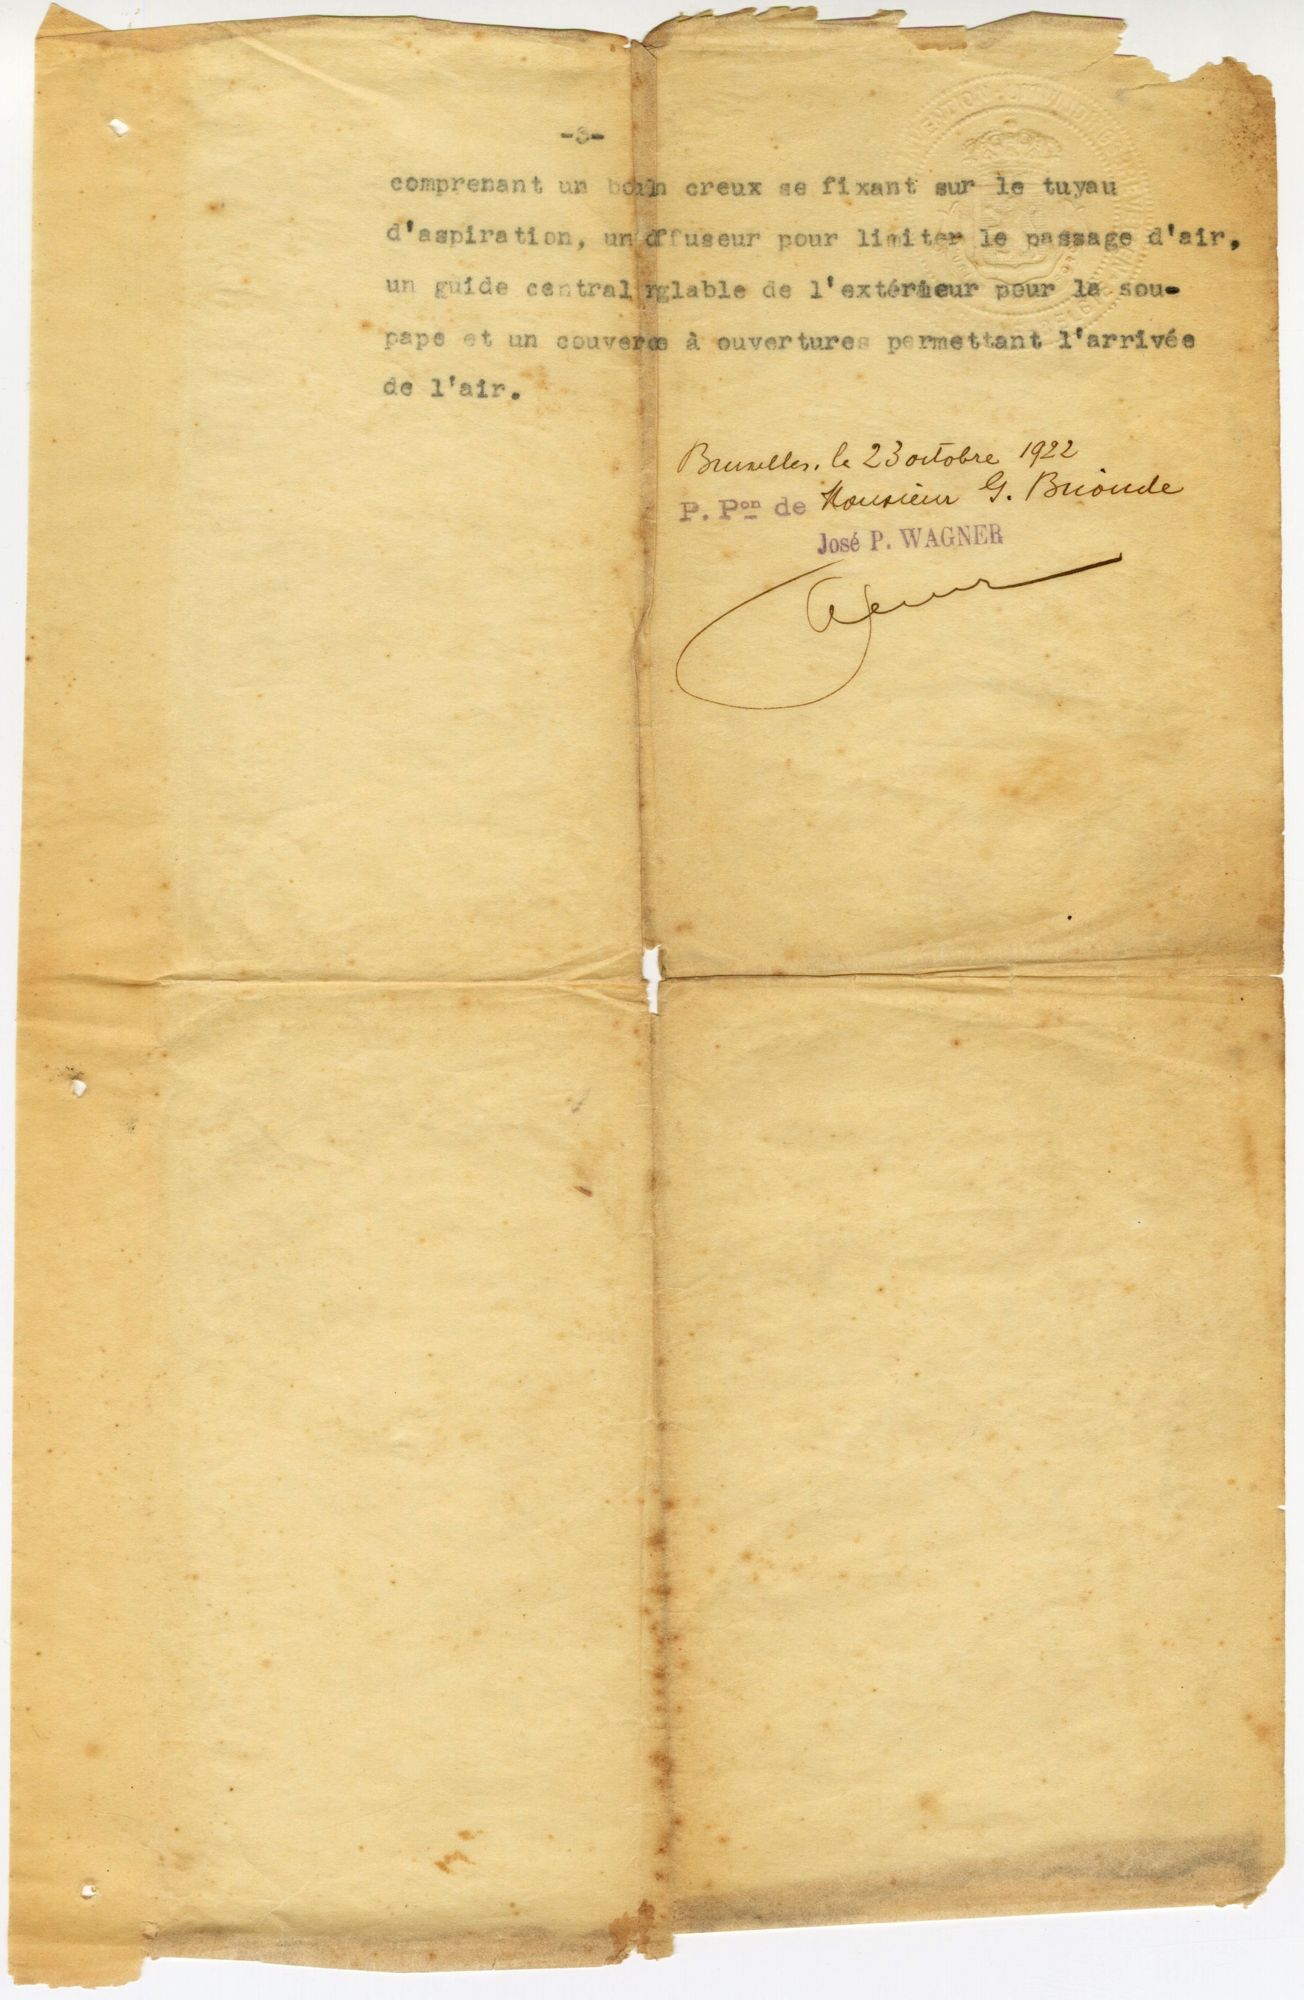 -3-
comprenant un creux se fixant sur le tuyau
d'aspiration, un pour limiter le passage d'air,
un guide central de l'extérieur pour la sou-
pape et un à ouvertures permettant l'arrivée
de l'air.
Bruxelles, le 23 octobre 1922
P. Pon de Monsieur G. Brioude
José P. WAGNER